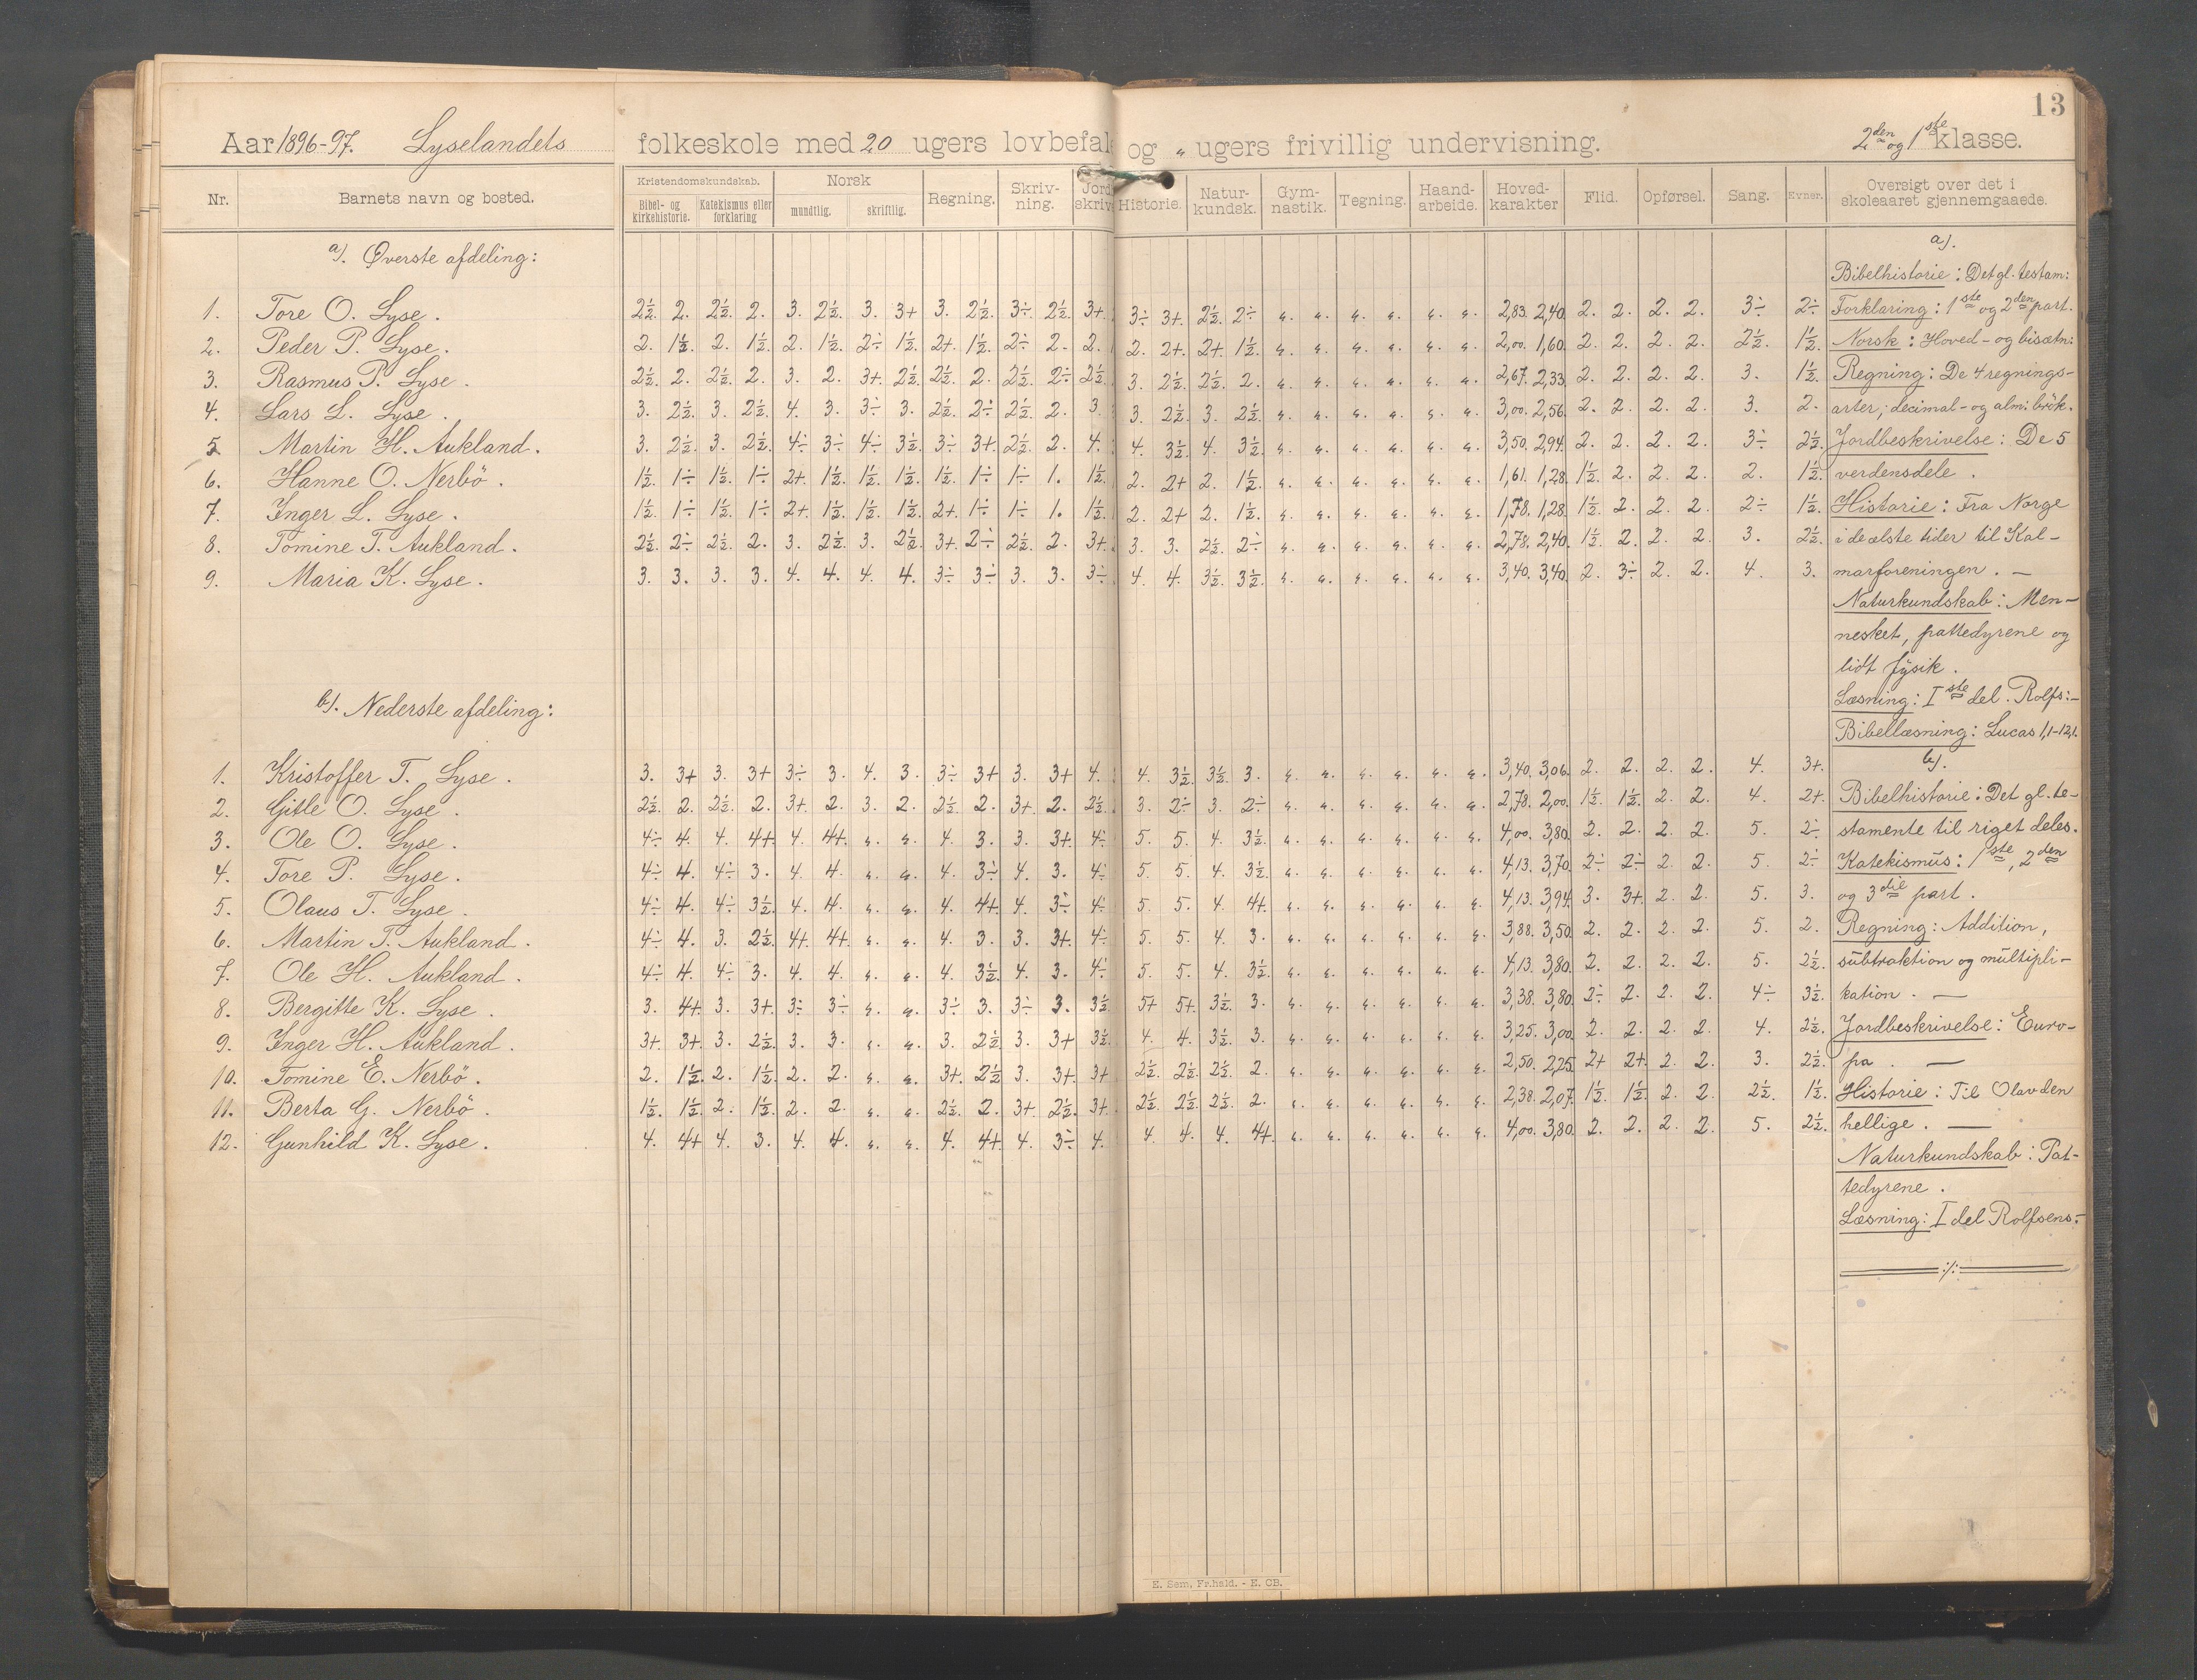 13
Aar 1896-97. Lyselandets folkeskole med 20 ugers lovbefal og „ ugers frivillig undervisning. 2den og 1ste klasse.
Nr. Barnets navn og bosted. Kristendomskundskab. Bibel- og kirkehistorie. Katekismus eller forklaring Norsk mundtlig. skriftlig. Regning. Skriv-ning. Jord skriv Historie. Natur-kundsk. Gym-nastik. Tegning. Haand-arbeide. Hoved-karakter Flid. Opførsel. Sang. Evner. Oversigt over det i skoleaaret gjennemgaaede.
a). Øverste afdeling:
1. Tore O. Lyse. 2½. 2. 2½. 2. 3. 2½. 3. 3+ 3. 2½. 3÷ 2½. 3+ 3÷ 3+. 2½. 2÷ „ „ „ „ „ „ 2,83. 2,40. 2. 2. 2. 2. 3÷ 2÷
2. Peder P. Lyse. 2. 1½. 2. 1½. 2. 1½. 2÷ 1½. 2+. 1½. 2÷ 2. 2. 2. 2+. 2+. 1½. „ „ „ „ „ „ 2,00. 1,60. 2. 2. 2. 2. 2½. 1½.
3. Rasmus P. Lyse. 2½. 2. 2½. 2. 3. 2. 3+. 2½. 2½. 2. 2½. 2÷ 2½ 3. 2½. 2½. 2. „ „ „ „ „ „ 2,67. 2,33. 2. 2. 2. 2. 3. 1½.
4. Lars L. Lyse. 3. 2½. 3. 2½. 4. 3. 3÷ 3. 2½. 2÷ 2½. 2. 3. 3. 2½ 3. 2½. „ „ „ „ „ „ 3,00. 2,56. 2. 2. 2. 2. 3. 2.
5 Martin H. Aukland. 3. 2½. 3. 2½. 4÷ 3÷ 4÷ 3½. 3÷ 3+. 2½. 2. 4. 4. 3½. 4. 3½. „ „ „ „ „ „ 3,50. 2,94. 2. 2. 2. 2. 3÷ 2½.
6. Hanne O. Nerbö. 1½. 1÷ 1½. 1÷ 2+. 1½. 1½. 1½. 1½. 1÷ 1÷ 1. 1½. 2. 2+ 2. 1½. „ „ „ „ „ „ 1,61. 1,28. 1½. 2. 2. 2. 2. 1½.
7. Inger L. Lyse. 1½. 1÷ 1½. 1÷ 2+. 1½. 1½. 1½. 2+. 1÷ 1÷ 1. 1½. 2. 2+ 2. 1½. „ „ „ „ „ „ 1,78. 1,28. 1½. 2. 2. 2. 2÷ 1½.
8. Tomine T. Aukland. 2½. 2÷ 2½. 2. 3. 2½. 3. 2½. 3+. 2÷ 2½. 2. 3+. 3. 3. 2½. 2÷ „ „ „ „ „ „ 2,78. 2,40. 1½. 2. 2. 2. 3. 2½.
9. Maria K. Lyse. 3. 3. 3. 3. 4. 4. 4. 4. 3÷ 3÷ 3. 3. 3÷ 4. 4. 3½. 3½. „ „ „ „ „ „ 3,40. 3,40. 2. 3÷ 2. 2. 4. 3.
b). Nederste afdeling:
1. Kristoffer T. Lyse. 3. 3+ 3. 3+ 3÷ 3. 4. 3. 3÷ 3+ 3. 3+ 4. 4. 3½. 3½. 3. „ „ „ „ „ „ 3,40. 3,06. 2. 2. 2. 2. 4. 3+.
2. Gitle O. Lyse. 2½. 2. 2½. 2. 3+. 2. 3. 2. 2½. 2. 3+. 2. 2½ 3. 2÷ 3. 2÷ „ „ „ „ „ „ 2,78. 2,00. 1½. 1½. 2. 2. 4. 2+.
3. Ole O. Lyse. 4÷ 4. 4. 4+. 4. 4+. „ „ 4. 3. 3. 3+. 4÷ 5. 5. 4. 3½. „ „ „ „ „ „ 4,00. 3,80. 2. 2. 2. 2. 5. 2÷
4. Tore P. Lyse. 4÷ 4. 4÷ 3. 4. 4. „ „ 4. 3÷ 4. 3. 4÷ 5. 5. 4. 3½. „ „ „ „ „ „ 4,13. 3,70. 2÷ 2÷ 2. 2. 5. 2÷
5. Olaus T. Lyse. 4÷ 4. 4÷ 3½. 4. 4. „ „ 4. 4+. 4. 3÷ 4÷ 5. 5. 4. 4+. „ „ „ „ „ „ 4,13. 3,94. 3. 3+. 2. 2. 5. 3.
6. Martin T. Aukland. 4÷ 4. 3. 2½. 4+. 4+. „ „ 4. 3. 3. 3+. 4÷ 5. 5. 4. 3. „ „ „ „ „ „ 3,88. 3,50. 2. 2. 2. 2. 5. 2.
7. Ole H. Aukland. 4÷ 4. 4÷ 3. 4. 4. „ „ 4. 3½. 4. 3. 4÷ 5. 5. 4. 3½. „ „ „ „ „ „ 4,13. 3,80. 2. 2. 2. 2. 5. 2½.
8. Bergitte K. Lyse. 3. 4+. 3. 3+. 3÷ 3÷ „ „ 3÷ 3. 3÷ 3. 3½ 5+ 5+. 3½. 3. „ „ „ „ „ „ 3,38. 3,80. 2÷ 2. 2. 2. 4÷ 3½.
9. Inger H. Aukland. 3+. 3+. 3. 2½. 3. 3. „ „ 3. 2½. 3. 3+ 3½. 4. 4. 3½. 3. „ „ „ „ „ „ 3,25. 3,00. 2. 2. 2. 2. 4. 2½.
10. Tomine E. Nerbö. 2. 1½. 2. 1½. 2. 2. „ „ 3+. 2½ 3. 3+. 3+ 2½. 2½. 2½. 2. „ „ „ „ „ „ 2,50. 2,25. 2+ 2+. 2. 2. 3. 2½.
11. Berta G. Nerbö. 1½. 1½. 2. 1½. 2. 2. „ „ 2½. 2. 3+. 2½. 3+ 2½. 2½. 2½. 2. „ „ „ „ „ „ 2,38. 2,07. 1½. 1½. 2. 2. 2½. 1½.
12. Gunhild K. Lyse. 4. 4+ 4. 3. 4. 4. „ „ 4. 4+. 4. 3÷ 4. 4. 4. 4. 4+. „ „ „ „ „ „ 4,00. 3,80. 2. 2. 2. 2. 5. 2½.
a).
Bibelhistorie: Det gl. testam:
Forklaring: 1ste og 2den part.
Norsk: Hoved- og bisætn:
Regning: De 4 regnings-
arter; decimal- og alm: brök.
Jordbeskrivelse: De 5
verdensdele.
Historie: Fra Norge
i de ælste tider til Kal-
marforeningen. —
Naturkundskab: Men-
nesket, pattedyrene og
lidt fysik.
Læsning: Iste del. Rolfs:-
Bibellæsning: Lucas 1,1-12,1.
b).
Bibelhistorie: Det gl. te-
stamente til riget deles.
Katekismus: 1ste, 2den
og 3die part.
Regning: Addition,
subtraktion og multipli-
kation. —
Jordbeskrivelse: Euro-
pa. —
Historie: Til Olav den
hellige. —
Naturkundskab: Pat-
tedyrene.
Læsning: I del Rolfsens:-
E. Sem, Fr.hald. - E. CB.